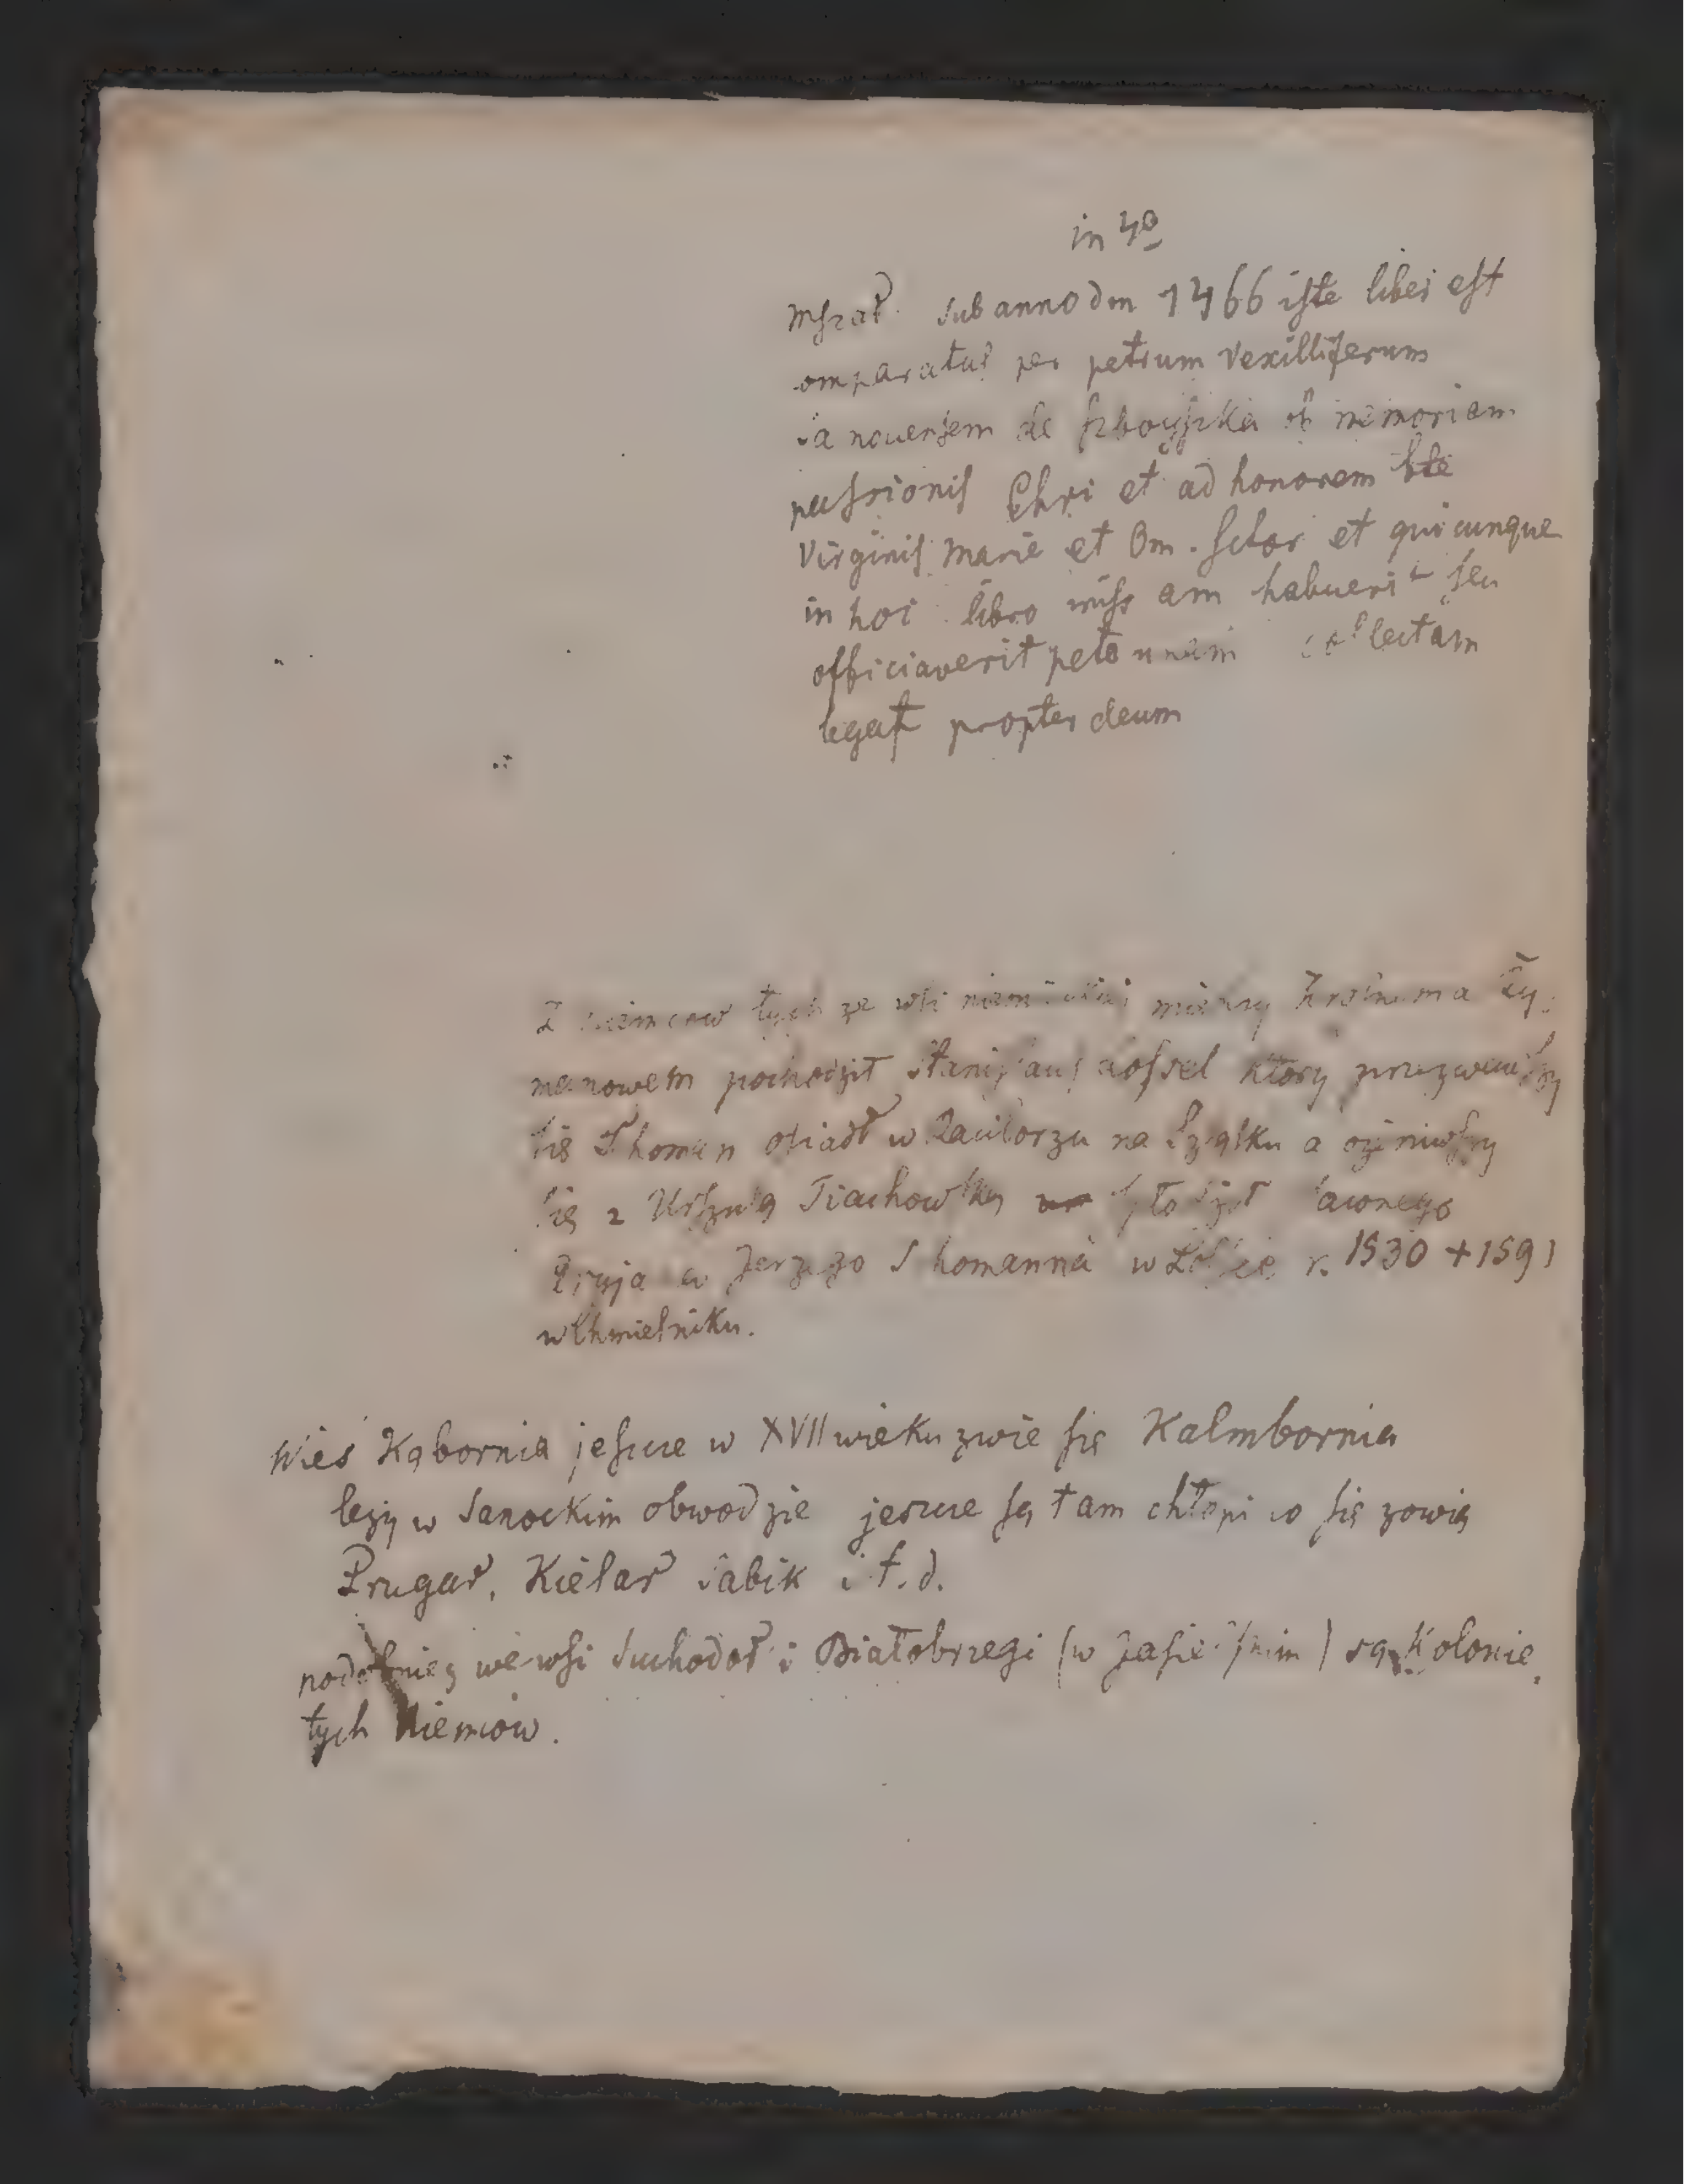 in 4o
Mszał. Sub anno dm 1466 iste liber est
omparatus per petrum Vexilliferum
sanocensem de ob memoriam
passionis Chri et ad honorem bte
Virginis Marie et Om. Sctor et quicunque
in hoc libro missam habuerit seu
officiaverit peto unam collectam
legat propter deum
Z niemcow tych ze wsi między Krosnem a Ży.
nanowem pochodził Stanislaus który przezwawszy
się Shoman osiadł w Raciborzu na Szląsku a ożeniwszy
się z Urszulą spłodził sławnego
Jerzego Shomanna w r. 1530 + 1591
w Chmielniku.
Wieś Kąbornia jeszcze w XVII wieku zwie się Kalmbornia
leży w Sanockim obwodzie jeszcze są tam chłopi co się zowią
Prugar, Kielar Sabik i t. d.
podobnież we wsi Suchodoł i Białobrzegi (w Jasielskim) są kolonie
tych Niemców.